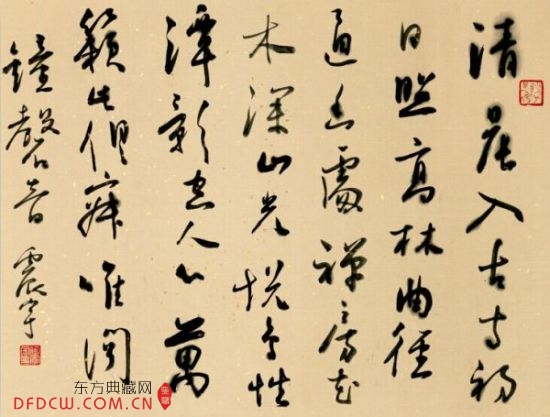 清晨入古寺初
日照高林曲徑
通幽處禪房花
木深山光悅鳥性
潭影空人心萬
籟此俱寂唯聞
鐘磬音 震宇
东方典藏网
DFDCW.COM.CN